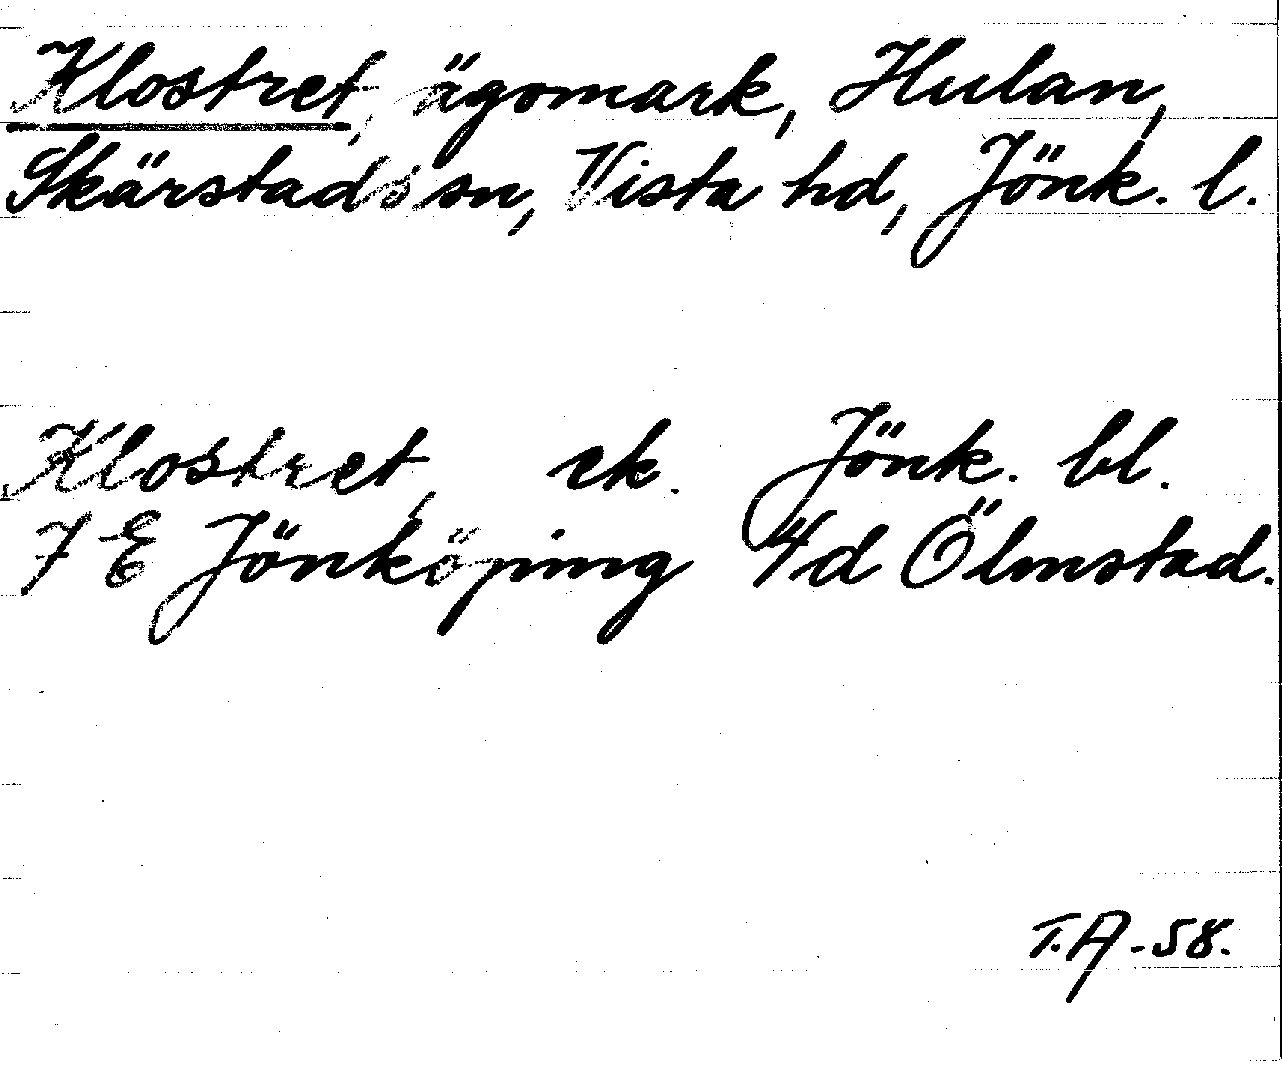 Klostret, ägomark, Hulan,
Skärstads sn, Vista hd, Jönk. l.
Klostret, ek. Jönk. bl.
7 E Jönköping 4d Ölmstad.
T.A-58.